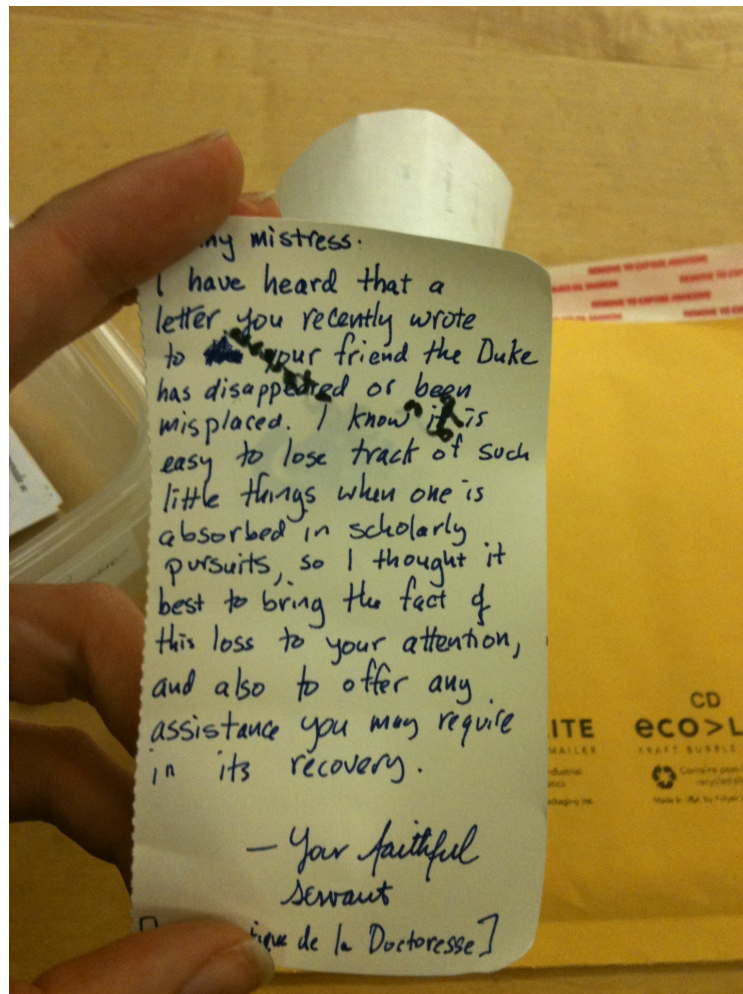 my mistress.
I have heard that a
letter you recently wrote
to your friend the Duke
has disappeared or been
misplaced. I know it is
easy to lose track of such
little things when one is
absorbed in scholarly
pursuits, so I thought it
best to bring the fact of
this loss to your attention,
and also to offer any
assistance you may require
in its recovery.
— Your faithful
servant
de la Doctoresse]
REMOVE TO EXPOSE ADHESIVE
CD
ITE
eco>L
MAILER
KRAFT BUBBLE
Contains post-
recycled
Made in USA by Polyair